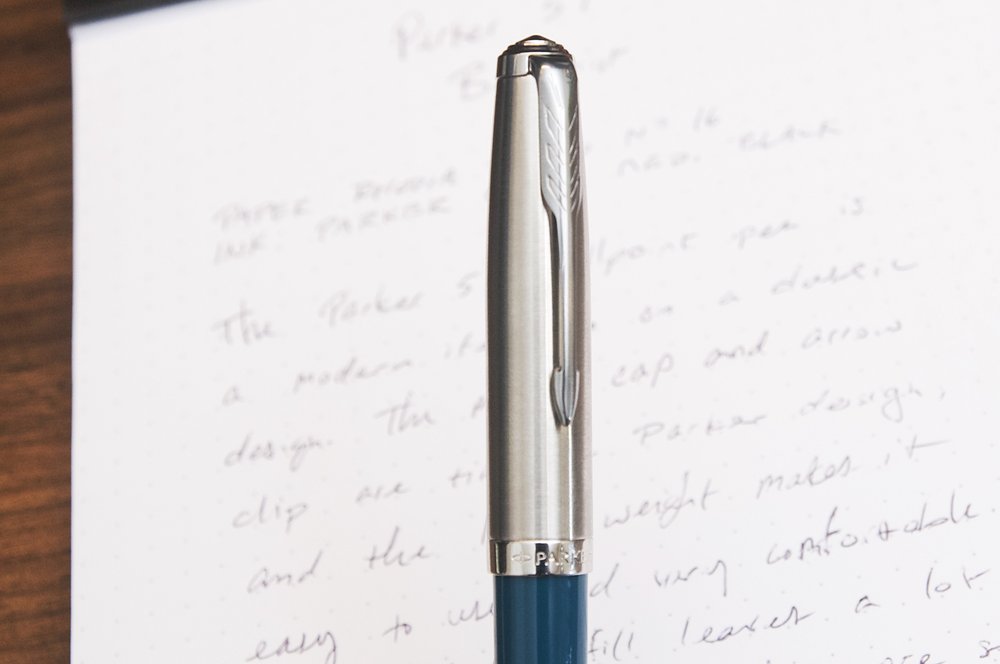 Parker 51
PAPER RHODIA N° 16
INK PARKER MED. BLACK
The Parker 5 llpoint pen is
a modern ite on a classic
design. The cap and arrow
clip are ti Parker design,
and the weight makes it
easy to us d very comfortable.
fill leaves a lot
PARKE